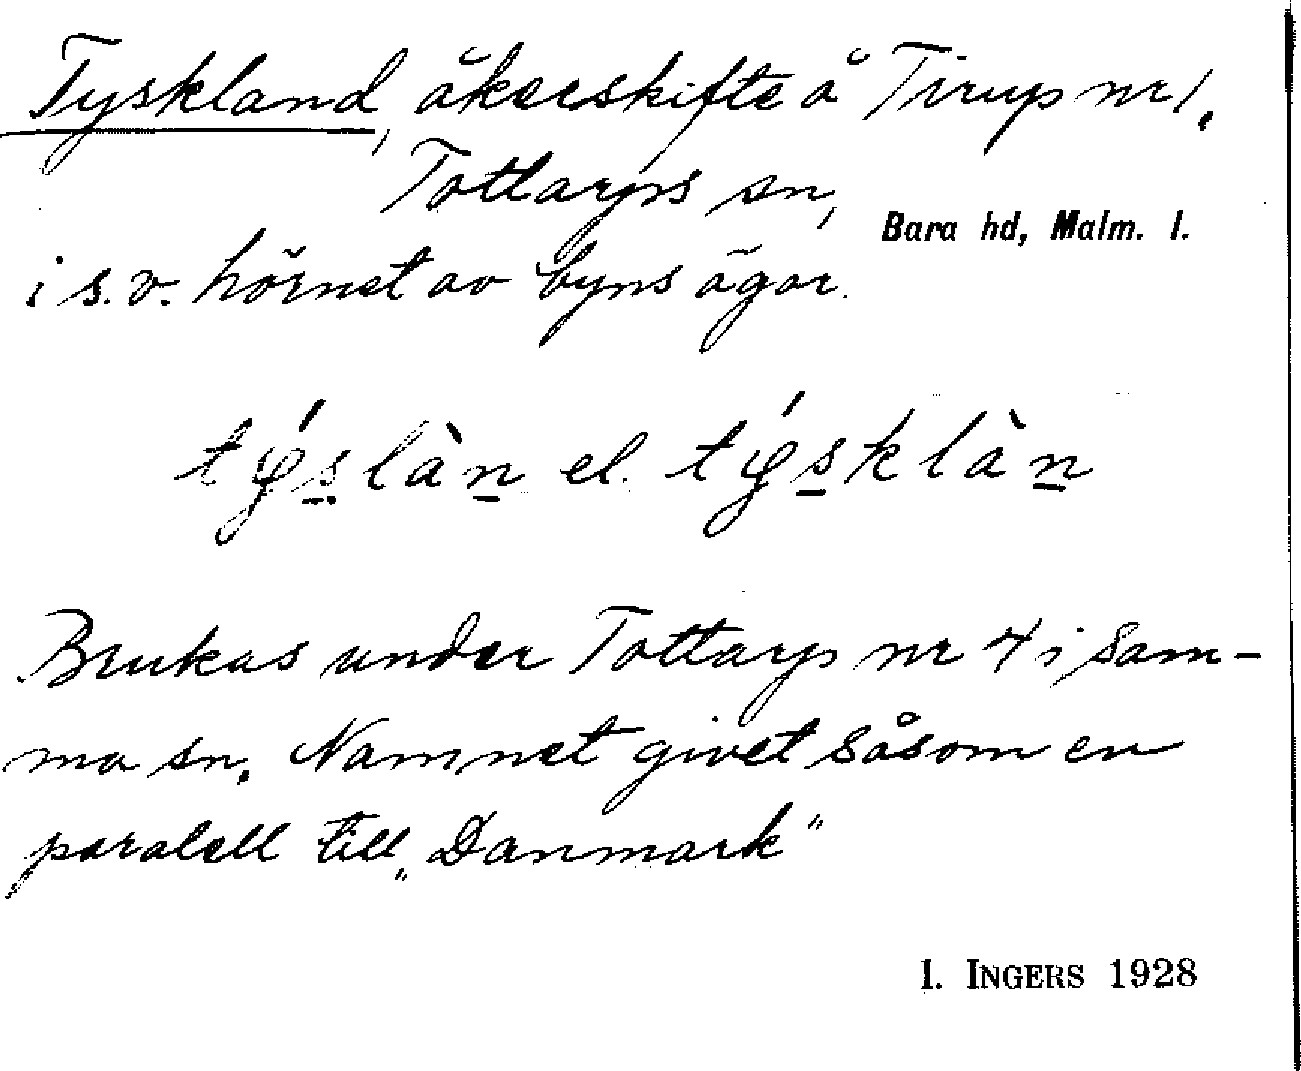 Tyskland, åkerskifte å Tirup nr 1,
Tottarps sn,
Bara hd, Malm. l.
i s.v. hörnet av byns ägor.
týs̲làn̲ el. týs̲klàn̲
Brukas under Tottarp nr 4 i sam-
ma sn. Namnet givet såsom en
paralell till „Danmark"
I. INGERS 1928